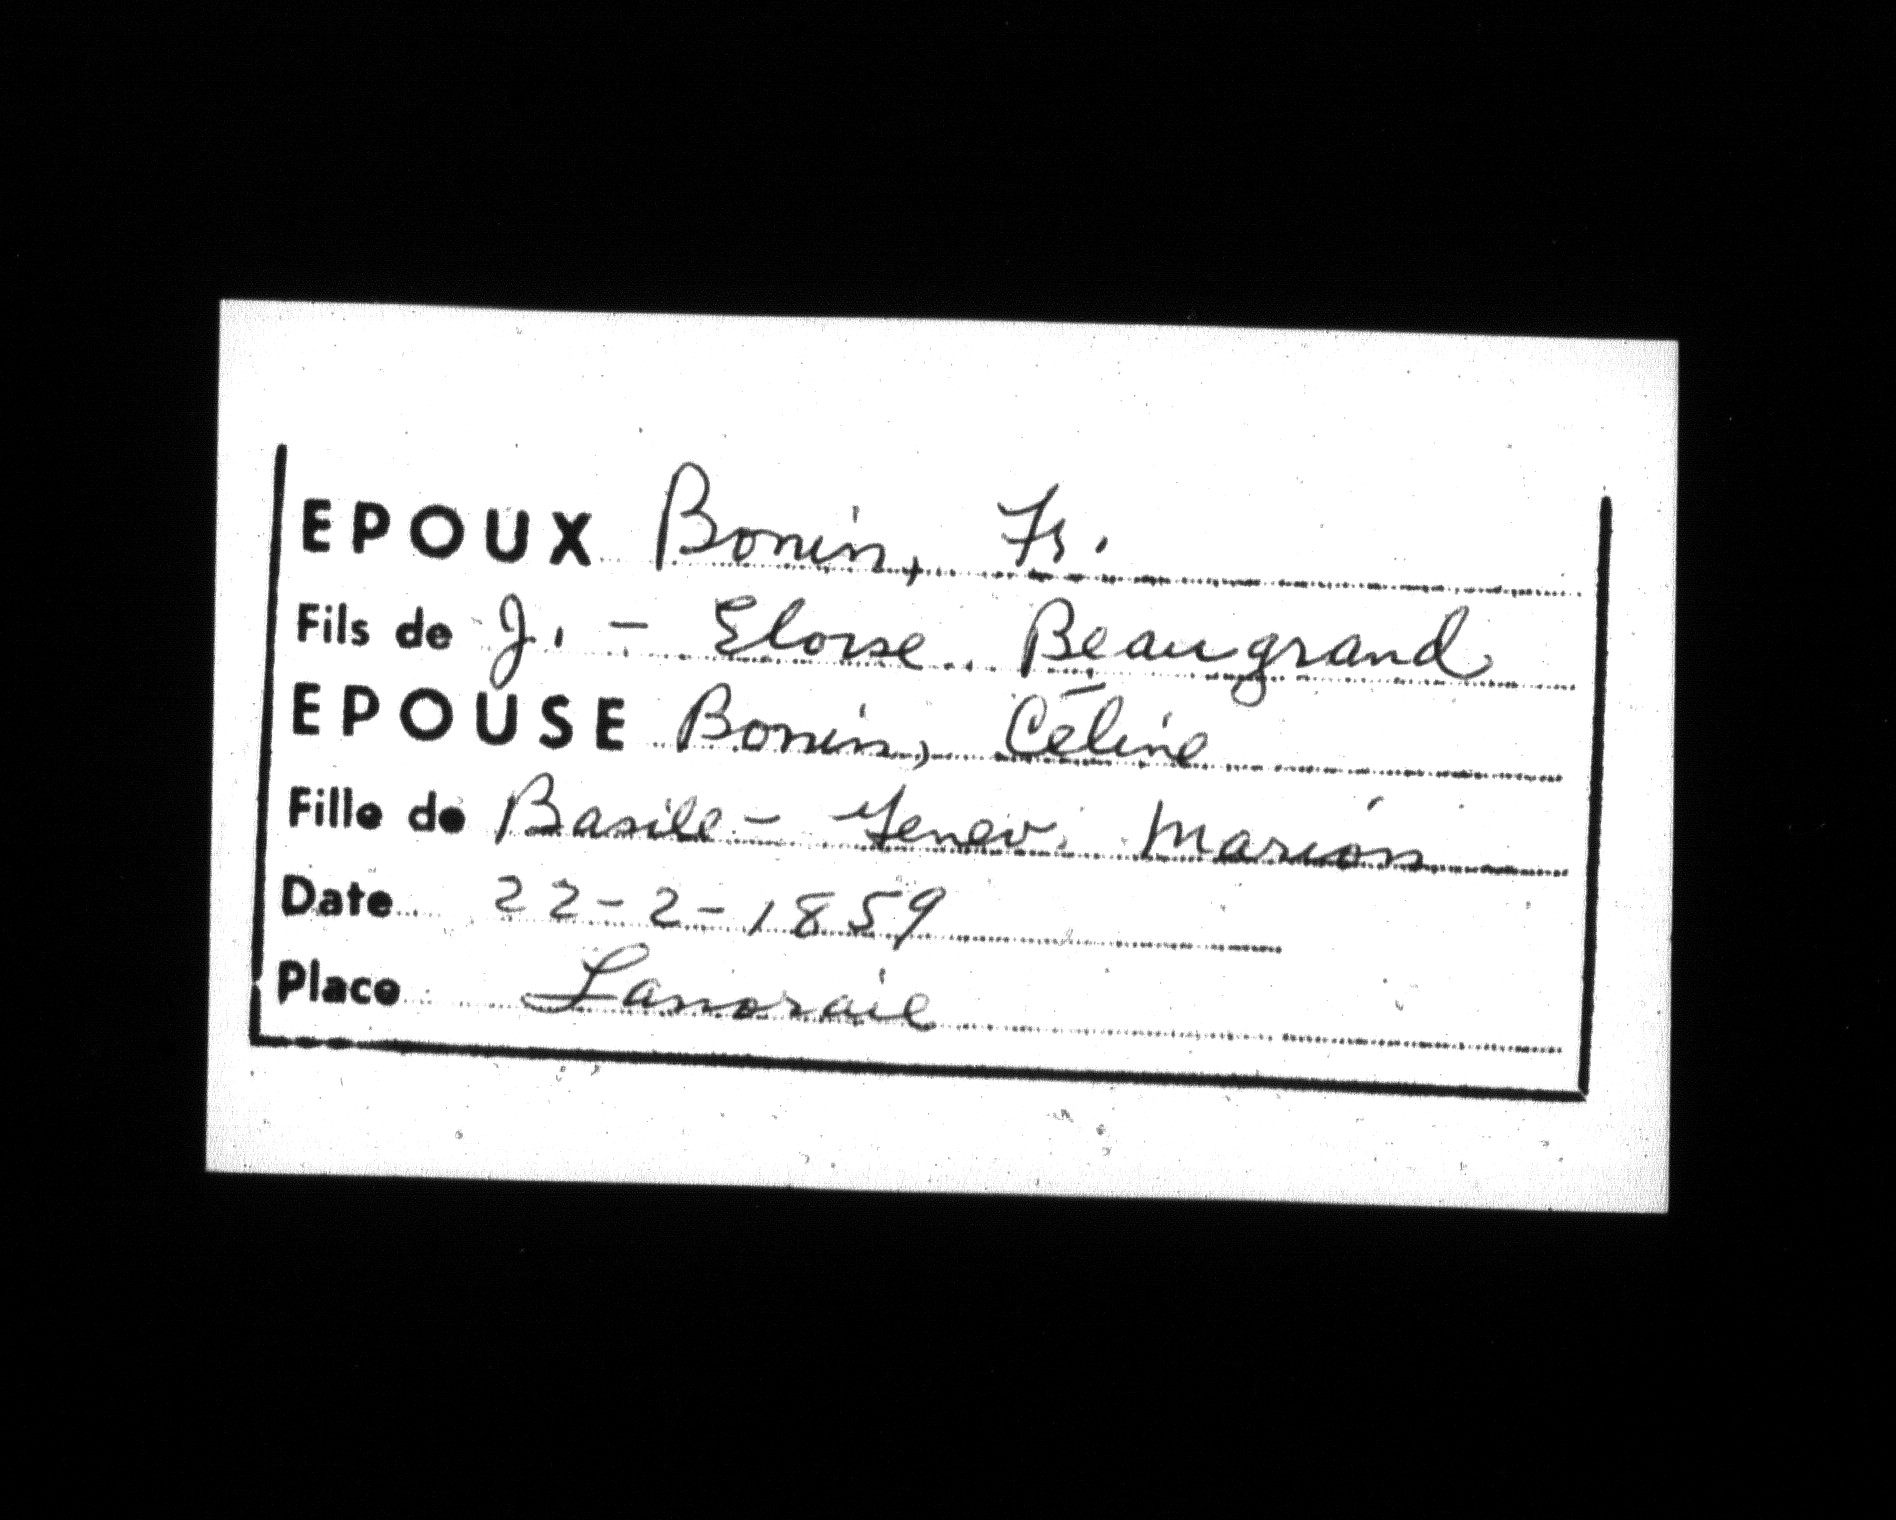 EPOUX Bonin, Fs.
Fils de J. - Eloise Beaugrand
EPOUSE Bonin, Céline
Fille de Basile - Genev. Marion
Date 22-2-1859
Place Lanoraie